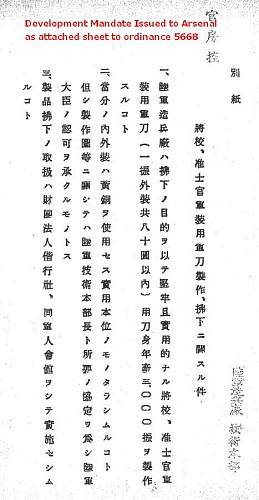 Development Mandate Issued to Arsenal
as attached sheet to ordinance 5668
官房控
別紙
陸軍造兵廠 技術本部
将校、准士官軍装用軍刀製作、拂下ニ關スル件
一、陸軍造兵廠ハ拂下ノ目的ヲ以テ堅牢且實用的ナル將校、准士官軍
装用軍刀(一振外装共八十圓以內)用刀身年産三、〇〇〇振ヲ製作
スルコト
二、當分ノ內外装ハ黄銅ヲ使用セス實用本位ノモノタラシムルコト
但シ製作圖等ニ關シテハ陸軍技術本部長ト所要ノ協定ヲ爲シ陸軍
大臣ノ認可ヲ承クルモノトス
三、製品拂下ノ取扱ハ財團法人偕行社、同軍人會館ヲシテ實施セシム
ルコト